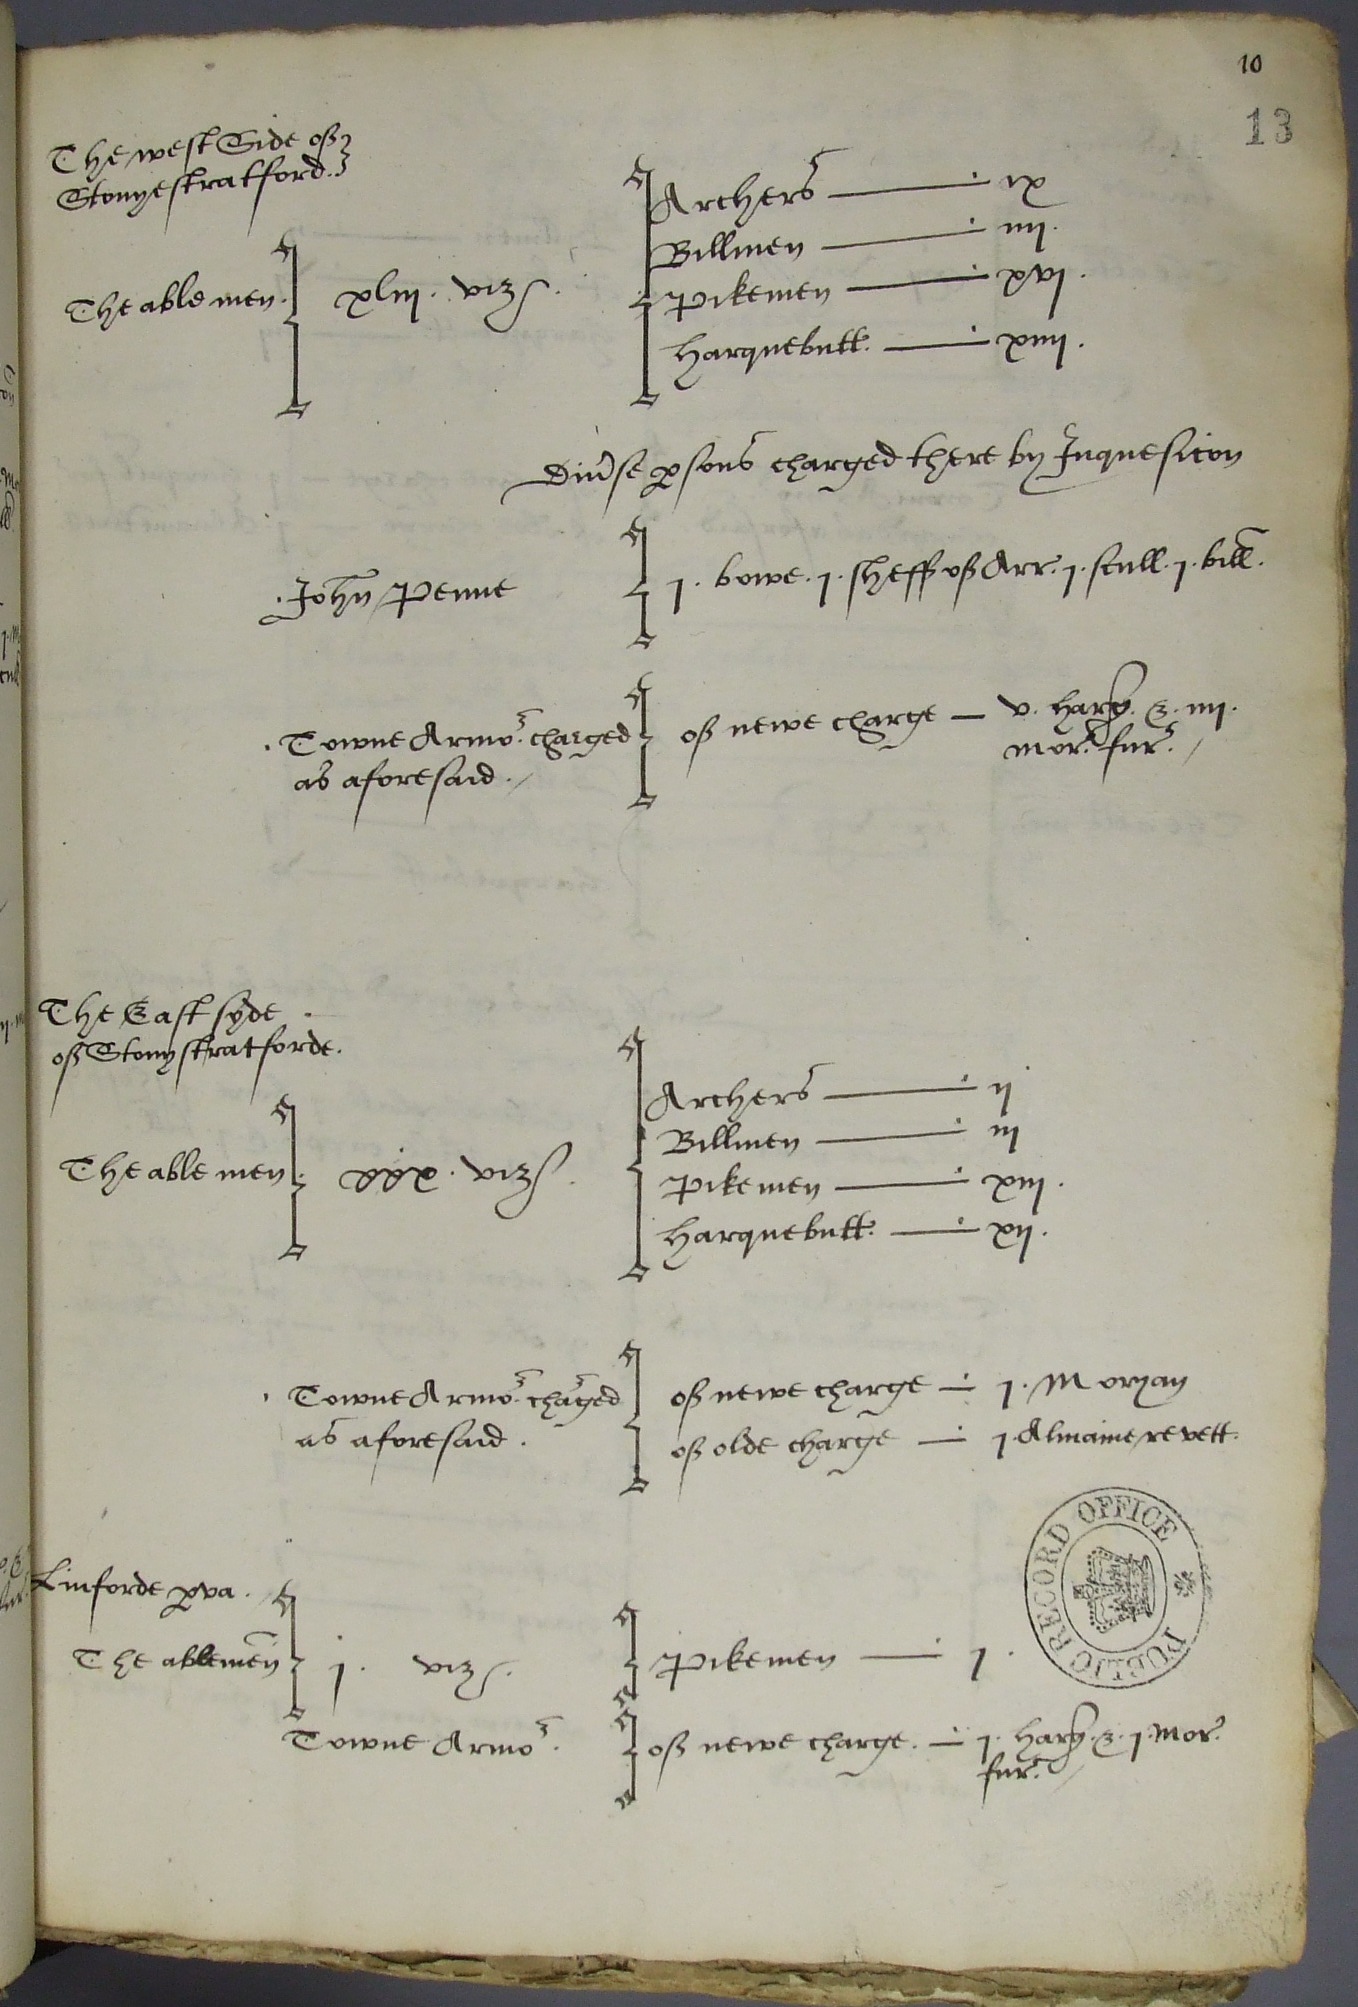 10
13
The west Side of
Stonyestratford.
The able men. xliii. vizƺ.
Archers — ix
Billmen — iiii.
Pikemen — xvi.
Harquebutt. — xiiii.
Div'se psons charged there by Inquesicon
John Penne j. bowe. j. sheff of Arr. j. scull. j. bill.
Towne Armo.r charged of newe charge — v. harq. & iiii.
as aforesaid. mor. fur.
The East syde
of Stonystratforde.
The able men xxx. vizƺ.
Archers — ij
Billmen — iij
Pikemen — xiij.
Harquebutt. — xij.
Towne Armo.r charged of newe charge — j. Moryan
as aforesaid. of olde charge — j. Almaine revett.
Linforde pva.
The ablemen j. vizƺ.
Pikemen — j.
Towne Armo.r of newe charge. — j. harq. & j. Mor.
fur.
PUBLIC RECORD OFFICE